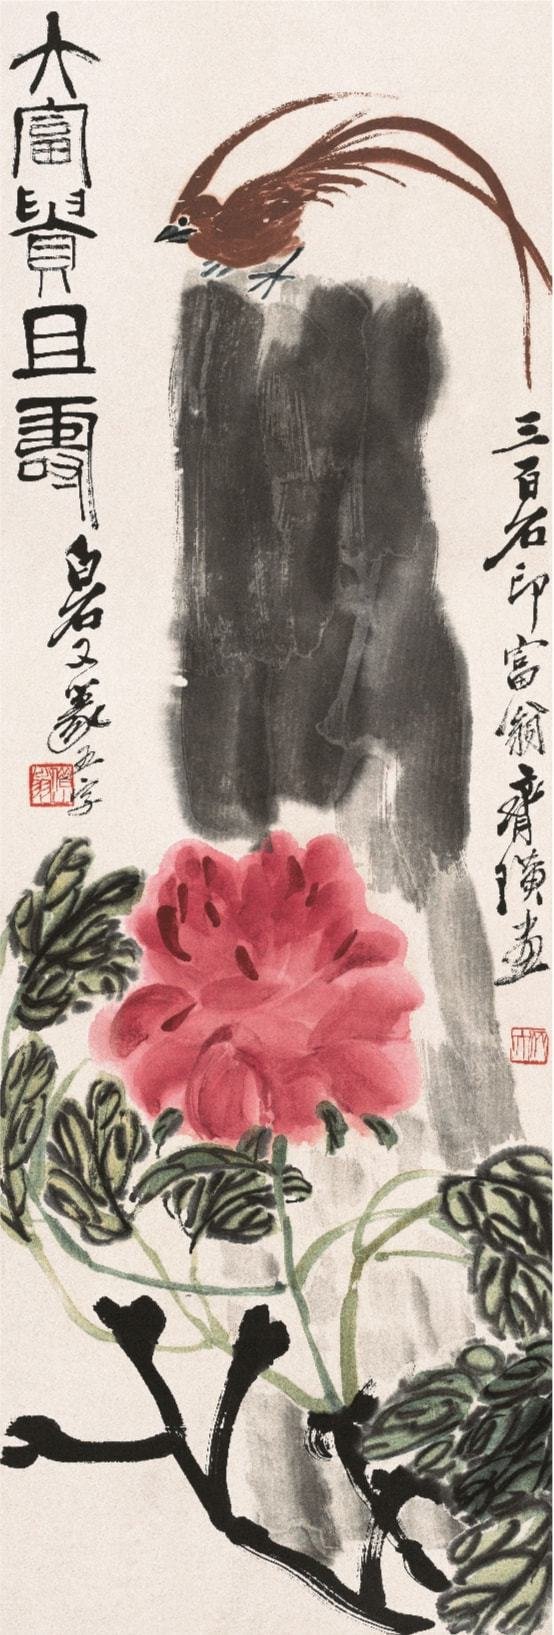 大富貴且壽
白石又篆五字
三百石印富翁齊璜畫